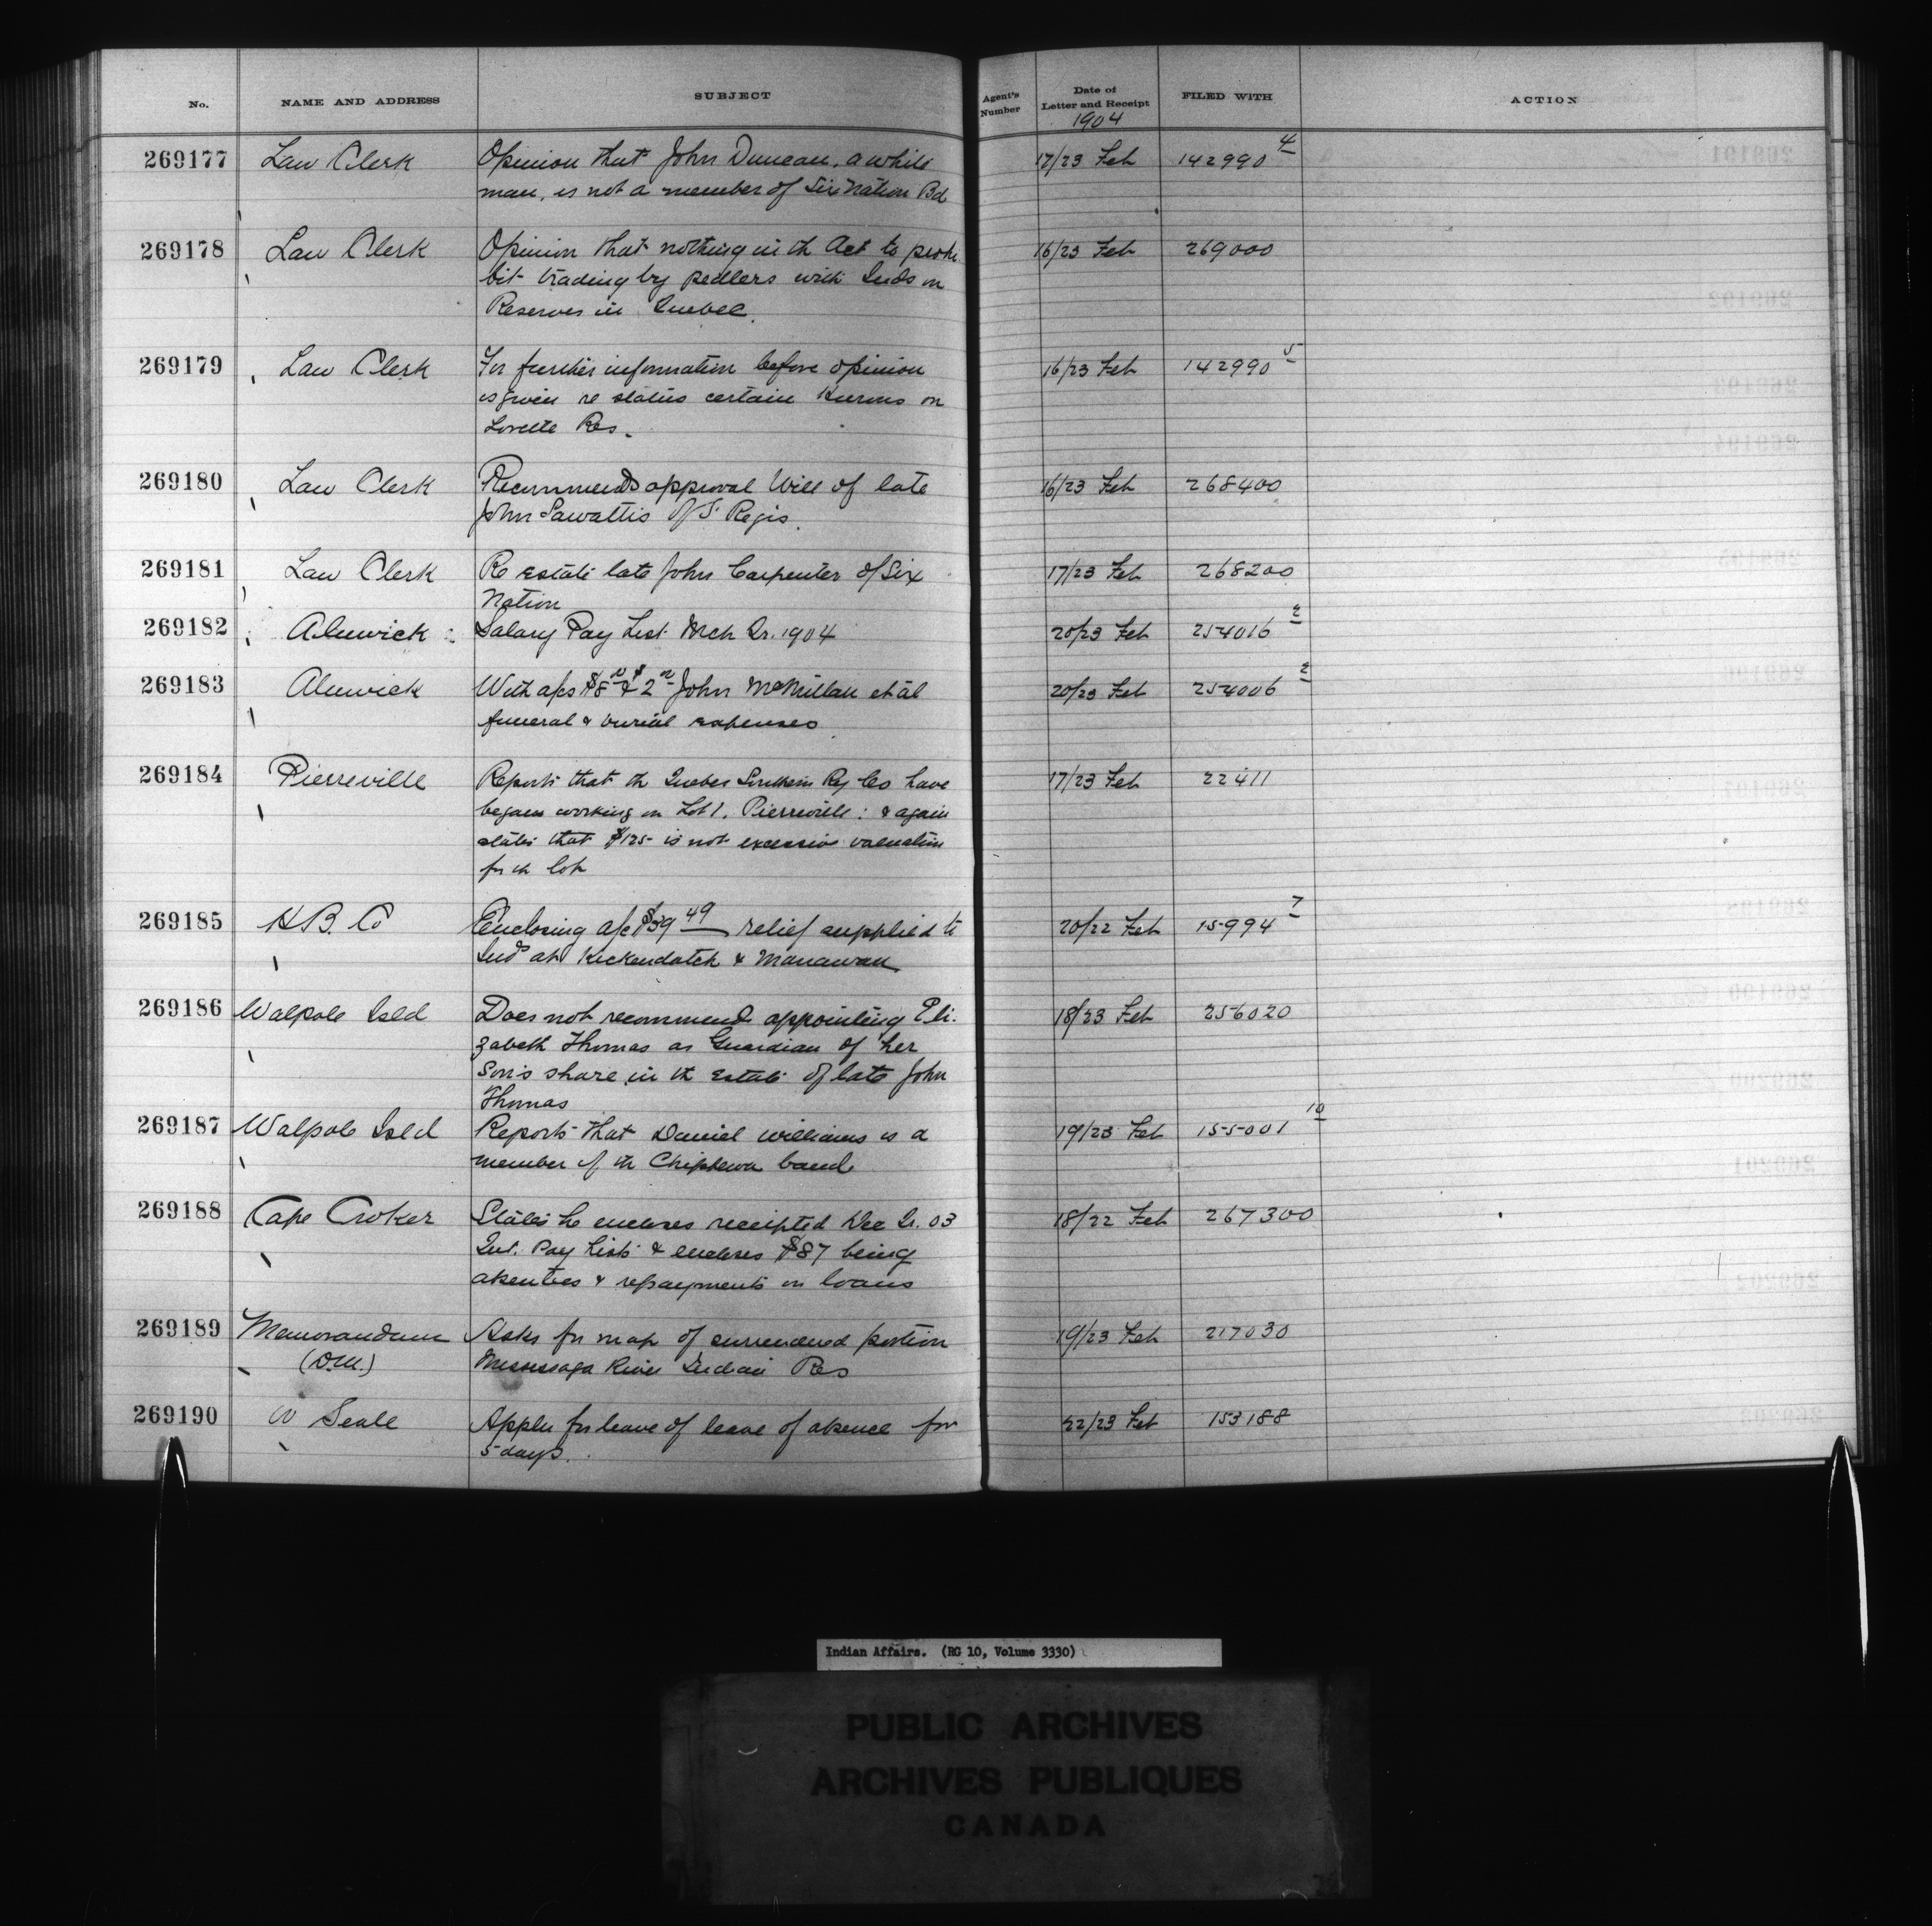 No. NAME AND ADDRESS SUBJECT Agent's Number Date of Letter and Receipt FILED WITH ACTION
1904
269177 Law Clerk Opinion that John Duncan, a white 17/23 Feb 142990 4
man, is not a member of Six Nation Bd
269178 Law Clerk Opinion that nothing in th Act to prohi 16/23 Feb 269000
bit trading by pedlers with Inds on
Reserves in Quebec.
269179 Law Clerk For further information before opinion 16/23 Feb 142990 5
is given re status certain Hurons on
Lorette Res.
269180 Law Clerk Recommends approval Will of late 16/23 Feb 268400
John Sawattis of St Regis.
269181 Law Clerk Re estate late John Carpenter of Six 17/23 Feb 268200
Nation
269182 Alnwick Salary Pay List Mch Qr. 1904 20/23 Feb 254016 2
269183 Alnwick With a/cs $8 & $2 John McMillan et al 20/23 Feb 254006 2
funeral & burial expenses
269184 Pierreville Reports that th Quebec Southern Ry Co have 17/23 Feb 22411
began working on Lot 1, Pierreville: & again
states that $125 is not excessive valuation
for th lot
269185 H B. Co Enclosing a/c $39 49 relief supplied to 20/22 Feb 15994 7
Inds at Kickendatch & Manawan
269186 Walpole Isld Does not recommend appointing Eli- 18/23 Feb 256020
zabeth Thomas as Guardian of her
Son's share in th estate of late John
Thomas
269187 Walpole Isld Reports that Daniel Williams is a 19/23 Feb 155001 10
member of th Chippewa band
269188 Cape Croker States he encloses receipted Dec Qr. 03 18/22 Feb 267300
Int. Pay Lists & encloses $87 being
absentees & repayments on loans
269189 Memorandum Asks for map of surrendered portion 19/23 Feb 217030
(D.M.) Mississaga River Indian Res
269190 W Seale Applies for leave of leave of absence for 22/23 Feb 153188
5 days.
Indian Affairs. (RG 10, Volume 3330)
PUBLIC ARCHIVES
ARCHIVES PUBLIQUES
CANADA